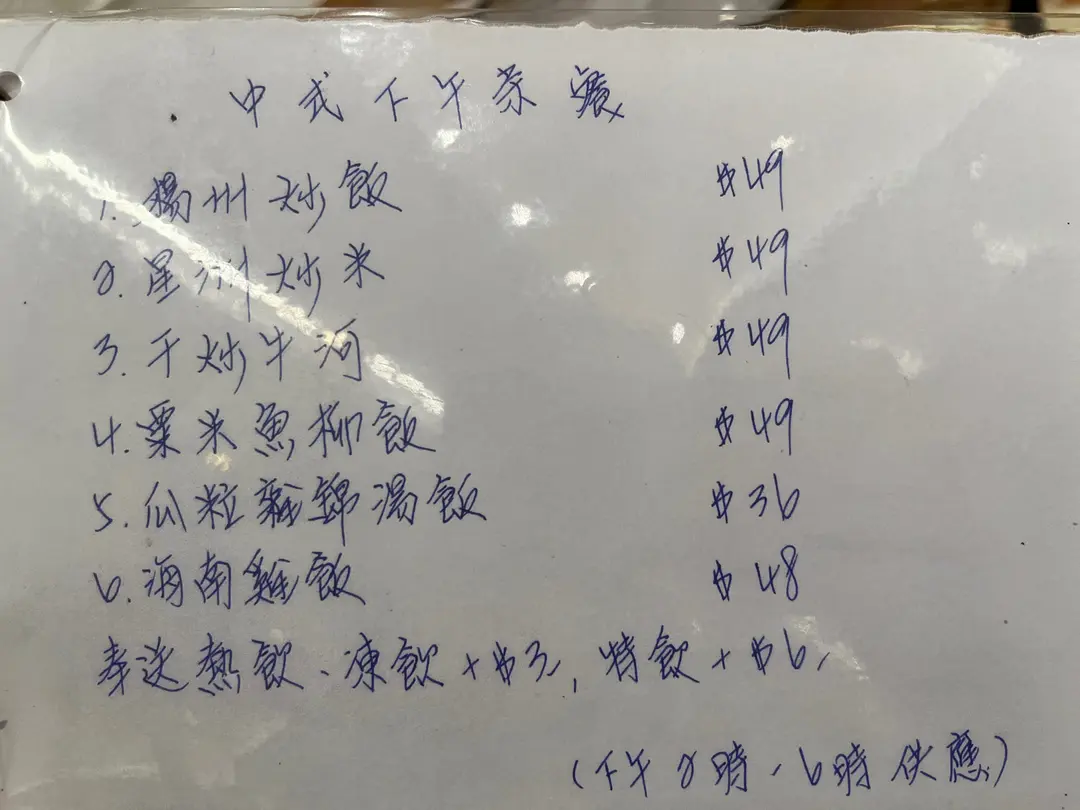 中式下午茶餐
1. 揚州炒飯 $49
2. 星洲炒米 $49
3. 干炒牛河 $49
4. 粟米魚柳飯 $49
5. 瓜粒雜錦湯飯 $36
6. 海南雞飯 $48
奉送熱飲、凍飲+$3, 特飲+$6,
(下午2時-6時供應)